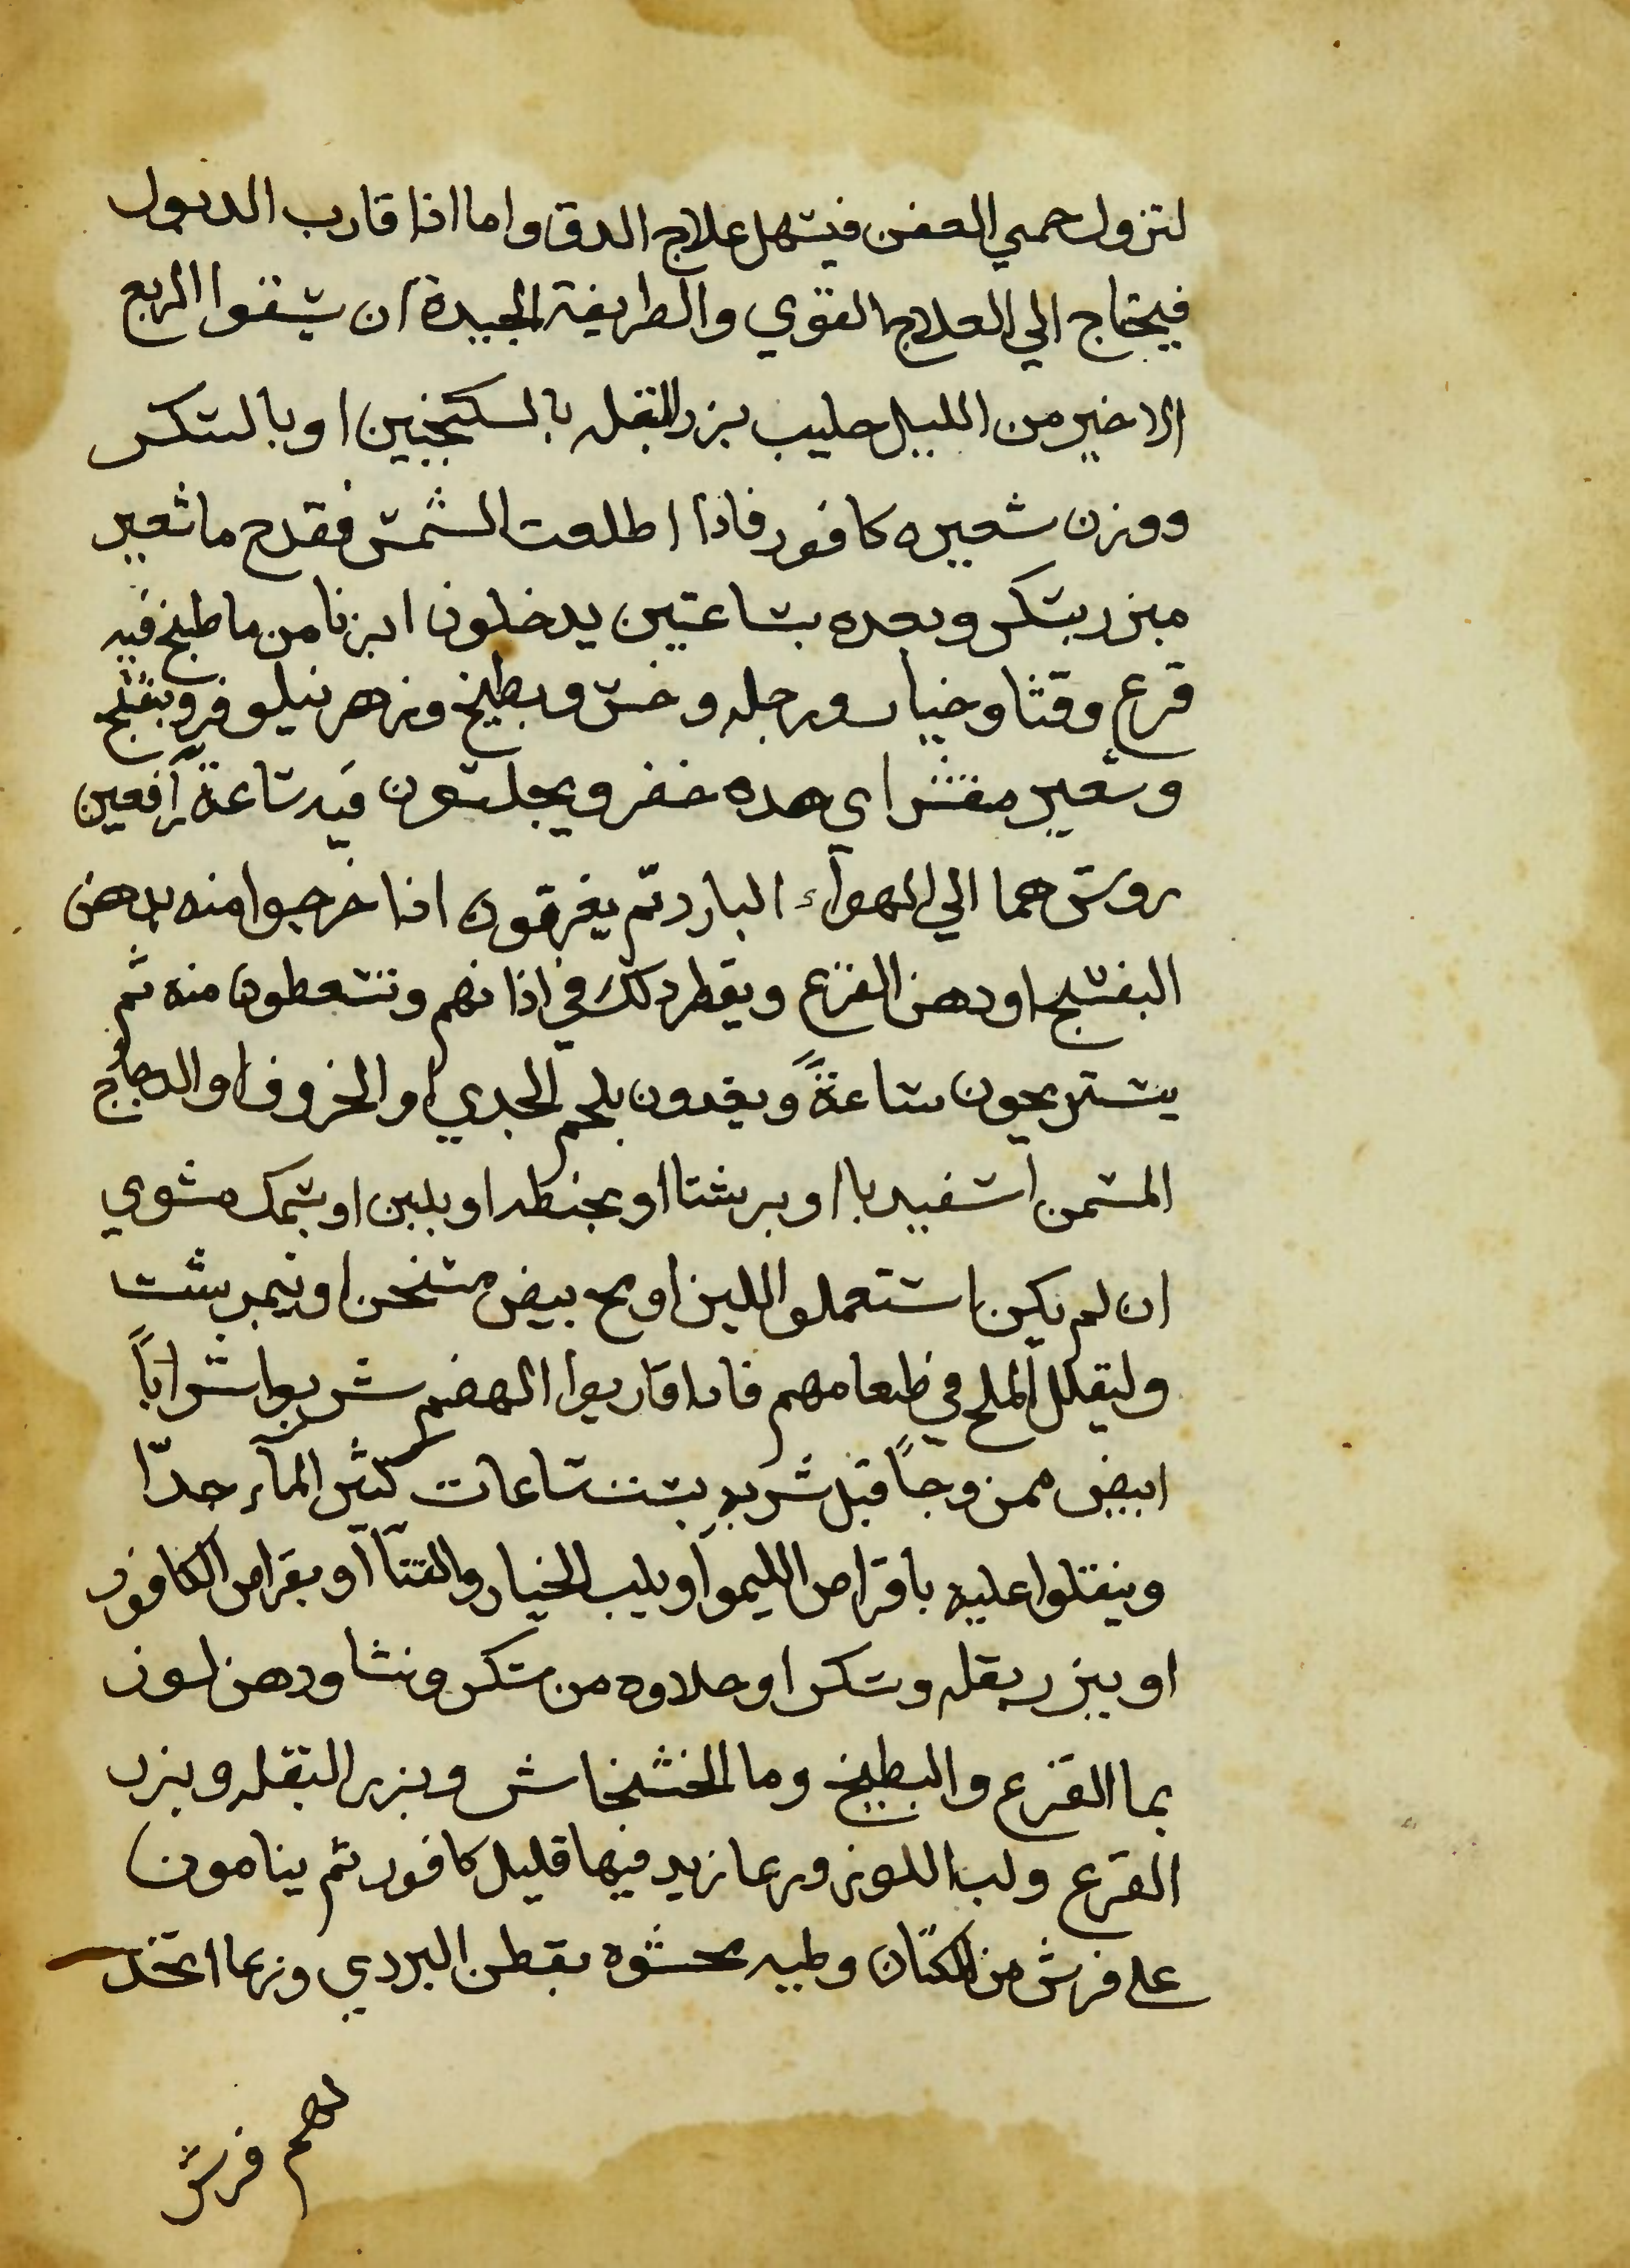 لتزول حمي العفن فيسهل علاج الدق واما اذا قارب الدبول
فيحتاج الي العلاج القوي والطريقة الجيدة ان يسقوا الربع
الاخير من الليل حليب بزر البقله بالسكنجبين او بالسكر
ووزن شعيره كافور فاذا اطلعت الشمس فقدح ما شعير
مبزر بسكر وبعده بساعتين يدخلون ابزنا من ما طبخ فيه
قرع وقثا وخيار ورجله وخس وبطيخ وزهر نيلوفر وبنفسج
وشعير مقشر اي هده حضر ويجلسون فيه ساعة رافعين
روسهما الي الهواء البارد ثم يغرقون اذا خرجوا منه بدهن
البنفسج او دهن القرع ويقطر دلك في اذانهم وتسعطون منه ثم
يستريحون ساعةً ويغدون بلحم الجدي او الخروف او الدجاج
المسمن اسفيدبا او برشتا او بحنطه او بلبن او بسمك مشوي
ان لم يكن استعملوا اللبن او مح بيض مسخن او نيمبرشت
وليقلل الملح في طعامهم فاذا قاربوا الهضم شربوا شراباً
ابيض ممزوجاً قبل شربه بست ساعات كثير الماء جدّا
وينقلوا عليه باقراص الليموا او بلب الخيار والقثآ او بقراص الكافور
او ببزر بقله وسكر او حلاوه من سكر ونشا ودهن لوز
بما القرع والبطيخ وما الخشخاش وبزر البقله وبزر
القرع ولب اللوز وربما زيد فيها قليل كافور ثم ينامون
علي فرش من الكتان ولميه محشوه بقطن البردي وربما اتخذ
لهم فرش